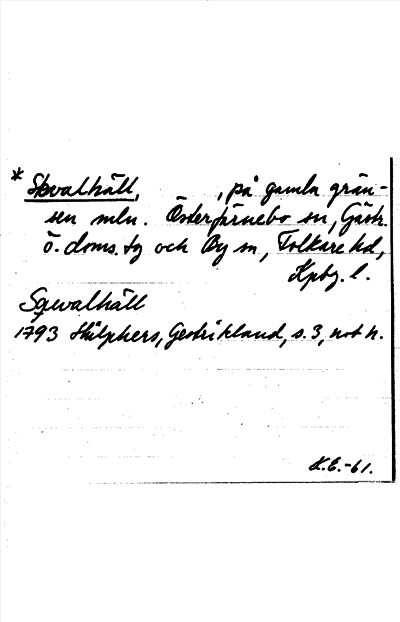 * Skvalhäll, , på gamla grän-
sen mln. Österfärnebo sn, Gästr.
ö. doms. tg och By sn, Folkare hd,
Kpbg. l.
Sqwalhäll
1793 Hülphers, Gestrikland, s. 3, not h.
K.E.-61.